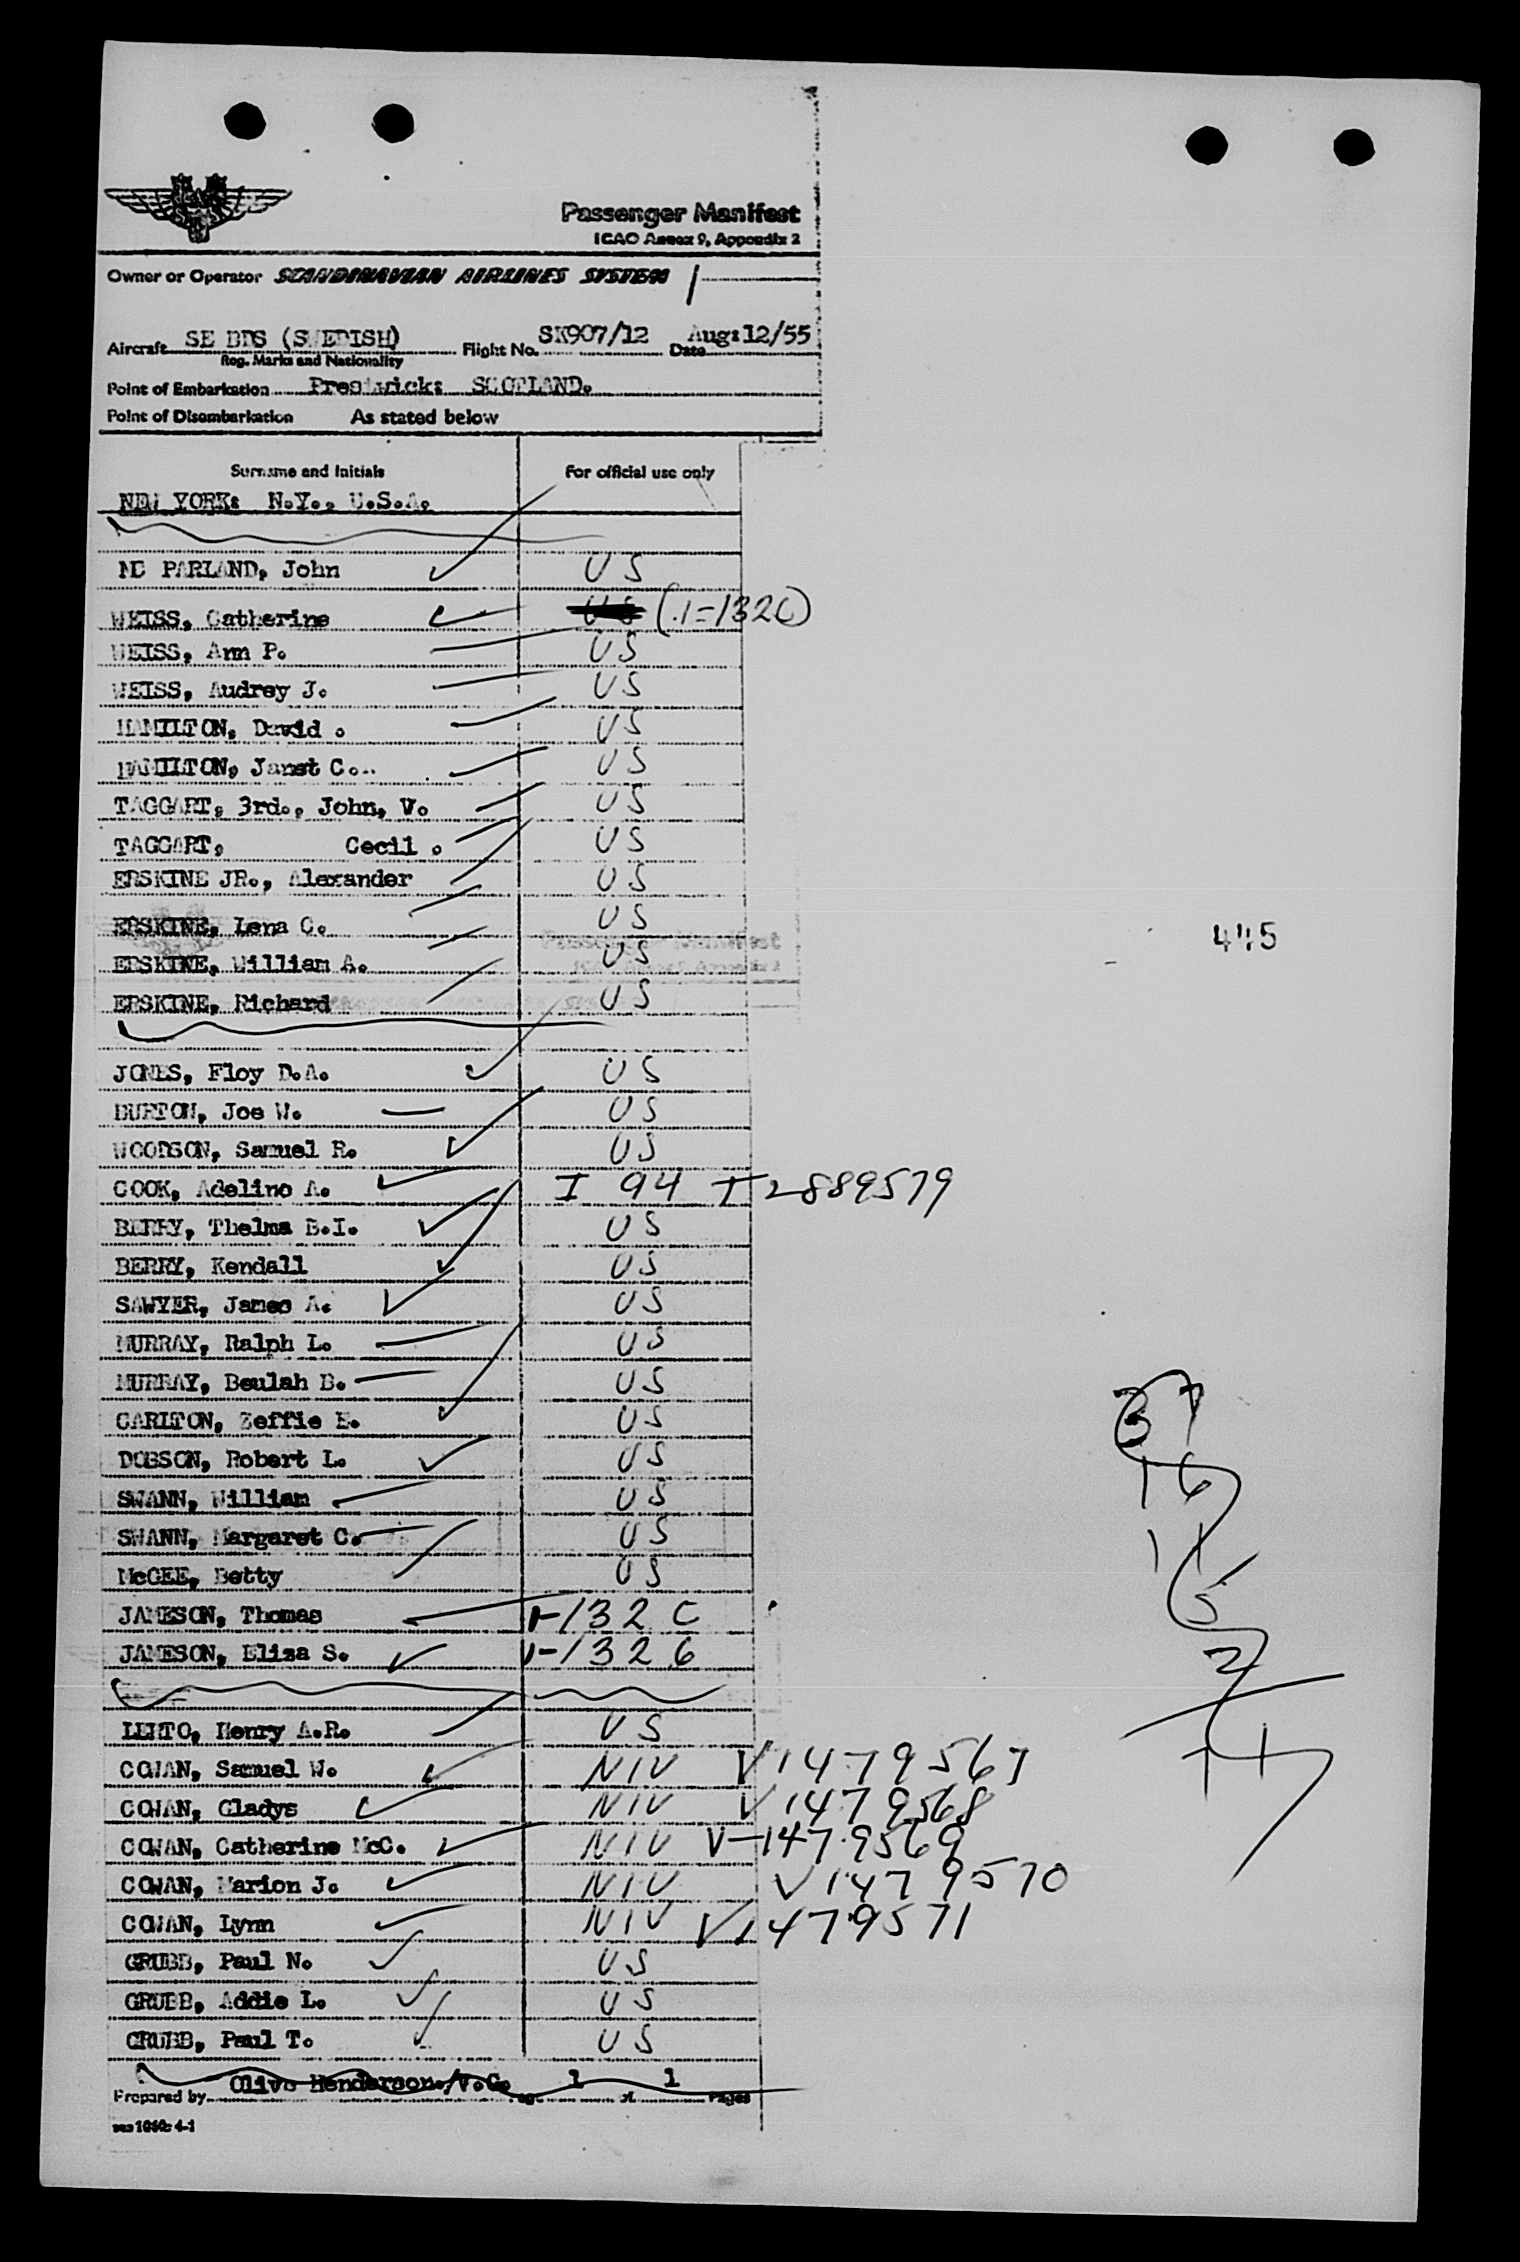 Passenger Manifest
ICAO Annex 9, Appendix 2
Owner or Operator SCANDINAVIAN AIRLINES SYSTEM
Aircraft SE BDS (SWEDISH) Flight No. SK907/12 Date Aug:12/55
Reg. Marks and Nationality
Point of Embarkation Prestwick: SCOTLAND.
Point of Disembarkation As stated below
Surname and Initials For official use only
NEW YORK: N.Y., U.S.A.
MC PARLAND, John US
WEISS, Catherine
WEISS, Ann P. US
WEISS, Audrey J. US
HAMILTON, David . US
HAMILTON, Janet C. US
TAGGART, 3rd., John, V. US
TAGGART, Cecil . US
ERSKINE JR., Alexander US
ERSKINE, Lena C. US
ERSKINE, William A. US
ERSKINE, Richard US
445
JONES, Floy D.A. US
BURTON, Joe W. US
WOODSON, Samuel R. US
COOK, Adeline A. I 94 T2889579
BERRY, Thelma B.I. US
BERRY, Kendall US
SAWYER, James A. US
MURRAY, Ralph L. US
MURRAY, Beulah B. US
CARLTON, Zeffie E. US
DOBSON, Robert L. US
SWANN, William US
SWANN, Margaret C. US
McGEE, Betty US
JAMESON, Thomas I-132 C
JAMESON, Eliza S. I-132 6
37
16
11
5
2
71
LEHTO, Henry A.R. US
COWAN, Samuel W. NIV V1479567
COWAN, Gladys NIV V1479568
COWAN, Catherine McC. NIV V-1479569
COWAN, Marion J. NIV V1479570
COWAN, Lynn NIV V1479571
GRUBB, Paul N. US
GRUBB, Addie L. US
GRUBB, Paul T. US
Prepared by Olive Henderson./V.C. Page 1 of 1 Pages